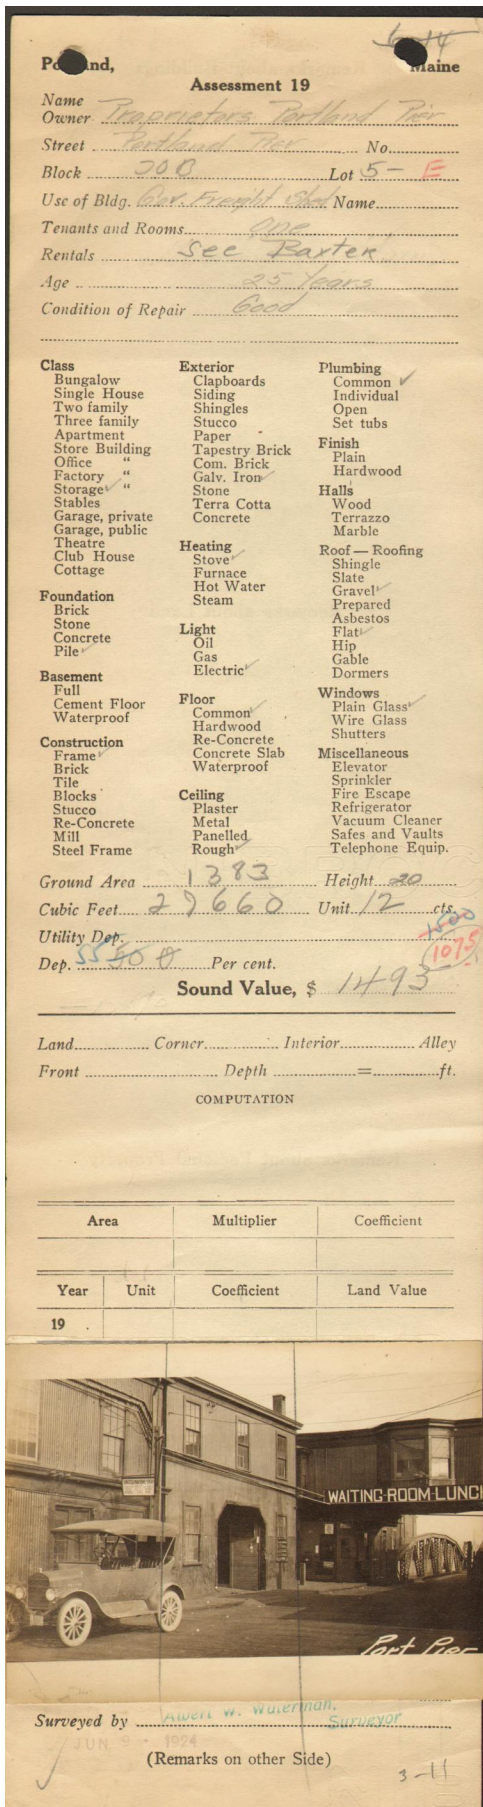 6-14
Po and, Maine
Assessment 19
Name
Owner Proprietors Portland Pier
Street Portland Pier No.
Block 30B Lot 5- E
Use of Bldg. Gov. Freight Shed Name
Tenants and Rooms one
Rentals see Baxter
Age 25 Years
Condition of Repair Good
Class
Bungalow
Single House
Two family
Three family
Apartment
Store Building
Office "
Factory "
Storage ✓ "
Stables
Garage, private
Garage, public
Theatre
Club House
Cottage
Foundation
Brick
Stone
Concrete
Pile ✓
Basement
Full
Cement Floor
Waterproof
Construction
Frame ✓
Brick
Tile
Blocks
Stucco
Re-Concrete
Mill
Steel Frame
Exterior
Clapboards
Siding
Shingles
Stucco
Paper
Tapestry Brick
Com. Brick
Galv. Iron ✓
Stone
Terra Cotta
Concrete
Heating
Stove ✓
Furnace
Hot Water
Steam
Light
Oil
Gas
Electric ✓
Floor
Common ✓
Hardwood
Re-Concrete
Concrete Slab
Waterproof
Ceiling
Plaster
Metal
Panelled
Rough ✓
Plumbing
Common ✓
Individual
Open
Set tubs
Finish
Plain
Hardwood
Halls
Wood
Terrazzo
Marble
Roof — Roofing
Shingle
Slate
Gravel ✓
Prepared
Asbestos
Flat ✓
Hip
Gable
Dormers
Windows
Plain Glass ✓
Wire Glass
Shutters
Miscellaneous
Elevator
Sprinkler
Fire Escape
Refrigerator
Vacuum Cleaner
Safes and Vaults
Telephone Equip.
Ground Area 1383 Height 20
Cubic Feet 27660 Unit 12 cts.
Utility Dep. 1500
1075
Dep. 55 50 Per cent.
Sound Value, $ 1495
Land Corner Interior Alley
Front Depth = ft.
COMPUTATION
Area Multiplier Coefficient
Year Unit Coefficient Land Value
19
WAITING-ROOM-LUNCH
Port Pier
Surveyed by Albert W. Waterman,
Surveyor
JUN 9 - 1924
(Remarks on other Side)
3-11